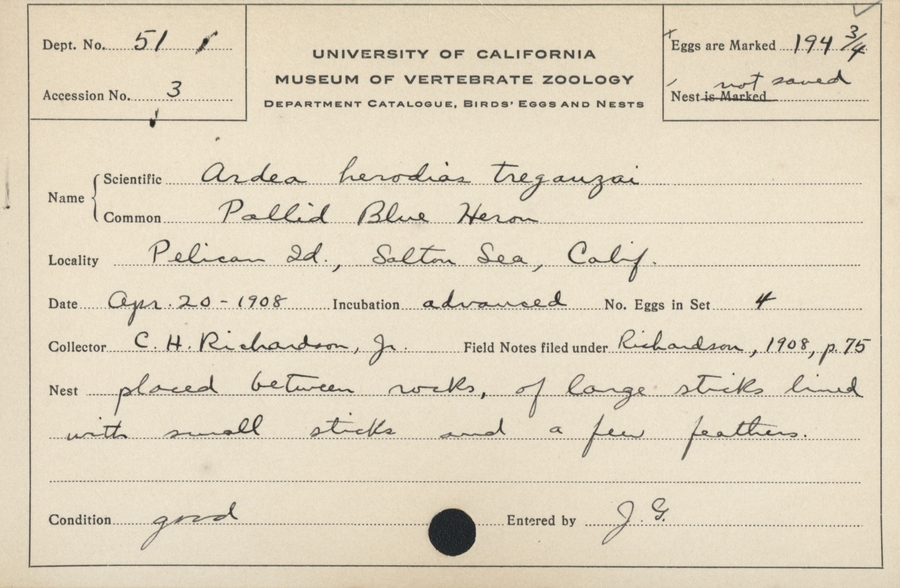 Dept. No. 51
Accession No. 3
UNIVERSITY OF CALIFORNIA
MUSEUM OF VERTEBRATE ZOOLOGY
DEPARTMENT CATALOGUE, BIRDS' EGGS AND NESTS
Eggs are Marked 194 3/4
not saved
Nest is Marked
Name
Scientific Ardea herodias treganzai
Common Pallid Blue Heron
Locality Pelican Id., Salton Sea, Calif.
Date Apr. 20-1908 Incubation advanced No. Eggs in Set 4
Collector C. H. Richardson, Jr. Field Notes filed under Richardson, 1908, p. 75
Nest placed between rocks, of large sticks lined
with small sticks and a few feathers.
Condition good Entered by J. G.